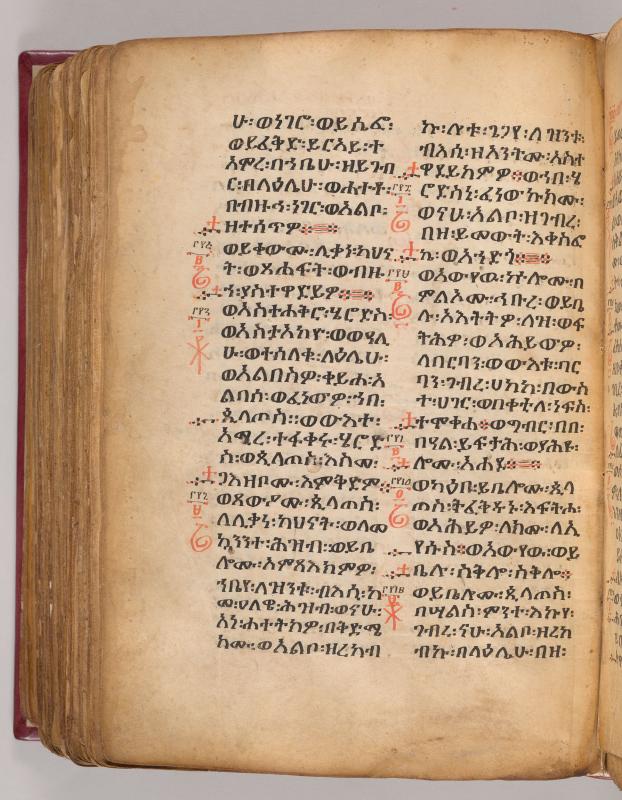 ሁ፡ወነገሮ፡ወይሴፎ፡
ወይፈቅድ፡ይርአይ፡ተ
አምረ፡በኀቤሁ፡ዘይገብ
ር፡ዘላዕሌሁ፡ወሐተቶ፡
በብዙኅ፡ነገር፡ወአልቦ፡
ዘተሰጥዎ።
ወይቀውሙ፡ሊቃነ፡ካህና
ት፡ወጸሐፍት፡ወብዙ
ኅ፡ያስተዋድይዎ።
ወአስተሐቅሮ፡ሄሮድስ፡
ወአስታእከየ፡ወወዓሊ
ሁ፡ወተሰለቀ፡ላዕሌሁ፡
ወአልበስዎ፡ቀይሐ፡አ
ልባሰ፡ወፈነወዎ፡ኀበ፡
ጲላጦስ።ወውእተ፡
አሚረ፡ተፋቀሩ፡ሄሮድ
ስ፡ወጲላጦስ፡እስመ፡
ጋእዝቦሙ፡እምቅድም።
ወጸውዖሙ፡ጲላጦስ፡
ለሊቃነ፡ካህናት፡ወለመ
ኳንንተ፡ሕዝብ፡ወይቤ
ሎሙ፡አምጻእክምዎ፡
ኀቤየ፡ለዝንቱ፡ብእሲ፡ከ
መ፡ሀለዌ፡ሕዝብ፡ወናሁ፡
አነ፡ሐተትክዎ፡በቅድሜ
ክሙ፡ወአልቦ፡ዘረከብ
ኩ፡ሎቱ፡ጌጋየ፡ለዝንቱ፡
ብእሲ፡ዘአንትሙ፡አስተ
ዋደይክምዎ።ወኀበ፡ሄ
ሮድስኒ፡ፈነውኩክሙ፡
ወናሁ፡አልቦ፡ዘገብረ፡
በዘ፡ይመውት፡እቀስፎ
ኬ፡ወአኀድጎ።
ወአውየዉ፡ኵሎሙ፡በ
ምልኦሙ፡ኅቡረ፡ወይቤ
ሉ፡አእትቶ፡ለዝ፡ወፍ
ትሖ፡ወአሕይዎ፡
ለበርባን፡ወውእቱ፡በር
ባን፡ገብረ፡ሀከከ፡በውስ
ተ፡ሀገር፡ወበቀቲለ፡ነፍስ፡
ተሞቅሐ።ወግብር፡በበ፡
በዓል፡ይፍታሕ፡ወያሕዩ፡
ሎሙ፡አሐደ።
ወካዕበ፡ይቤሎሙ፡ጲላ
ጦስ፡ትፈቅዱኑ፡እፍትሖ፡
ወአሕይዎ፡ለክሙ፡ለኢ
የሱስ።ወአውየዉ፡ወይ
ቤሉ፡ስቅሎ፡ስቅሎ።
ወይቤሎሙ፡ጲላጦስ፡
በሣልስ፡ምንተ፡እኩየ፡
ገብረ፡ናሁ፡አልቦ፡ዘረከ
ብኩ፡በላዕሌሁ፡በዘ፡